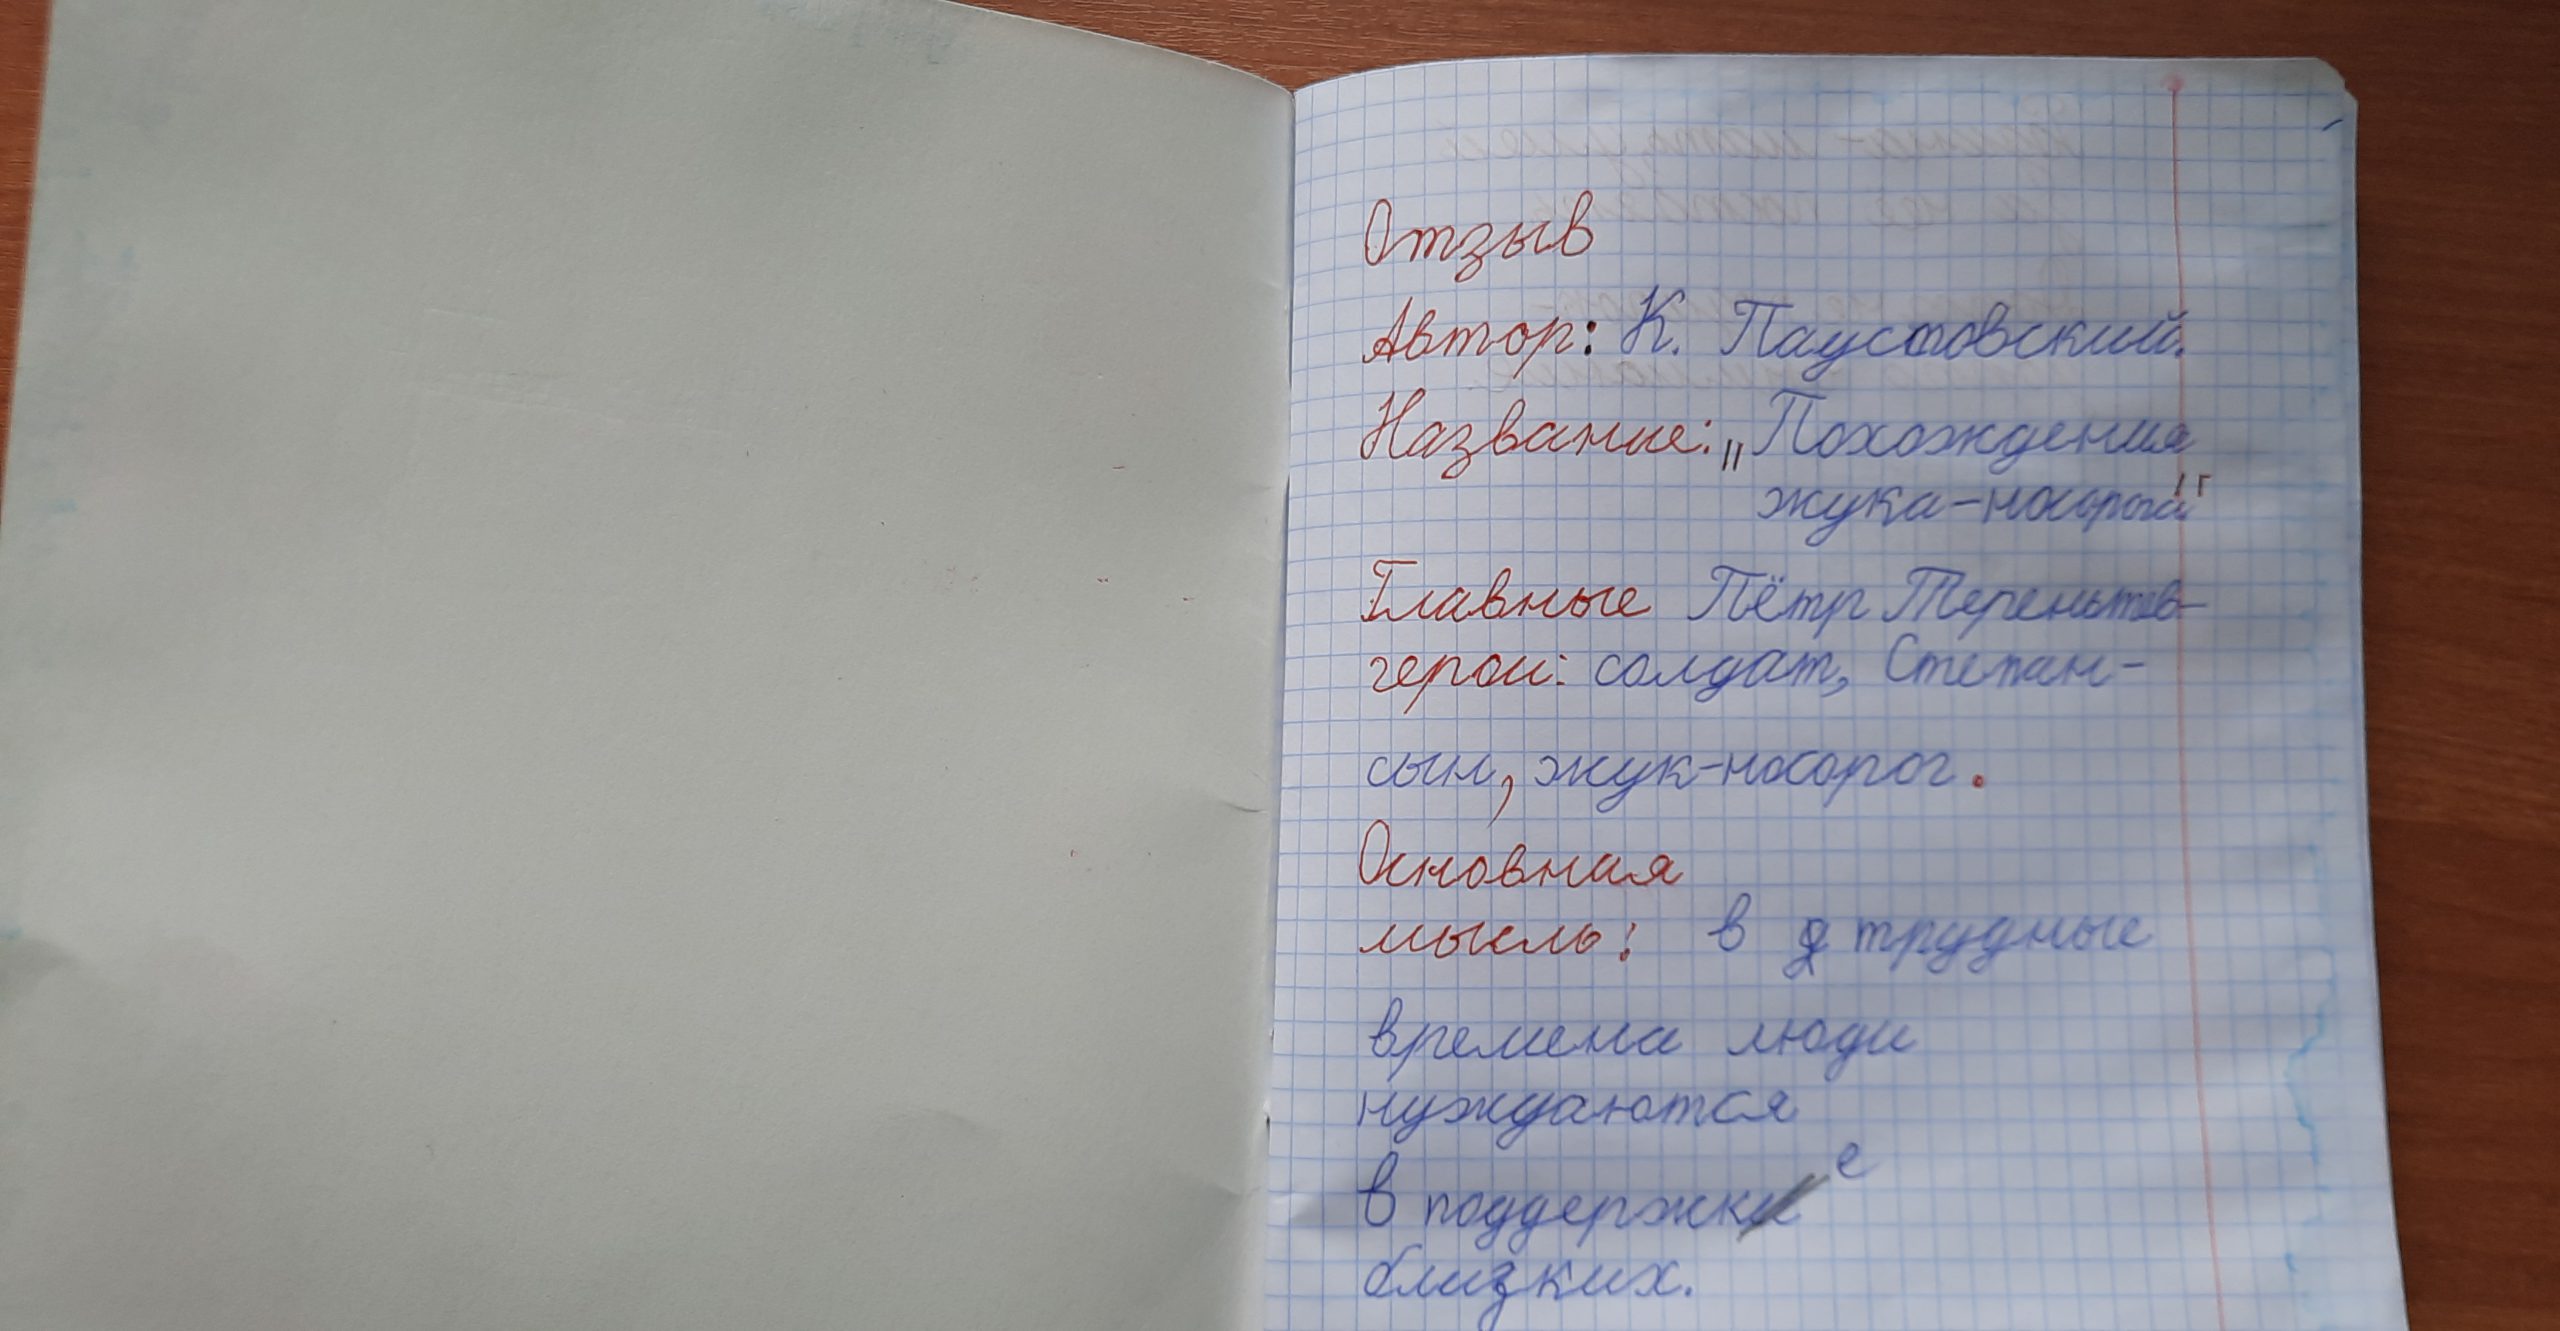 Отзыв
Автор: К. Паустовский.
Название: "Похождения
жука-носорога"
Главные Пётр Терентьев-
герои: солдат, Степан-
сын, жук-носорог.
Основная
мысль: в трудные
времена люди
нуждаются
в поддержке
близких.